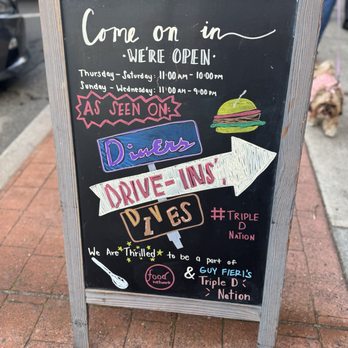 Come on in
·WE'RE OPEN·
Thursday - Saturday: 11:00 AM - 10:00 PM
Sunday - Wednesday: 11:00 AM - 9:00 PM
AS SEEN ON:
Diners
DRIVE-INS'
DIVES
#TRIPLE
D
NATION
We Are Thrilled to be a part of
food
network
& GUY FIERI'S
Triple D
Nation